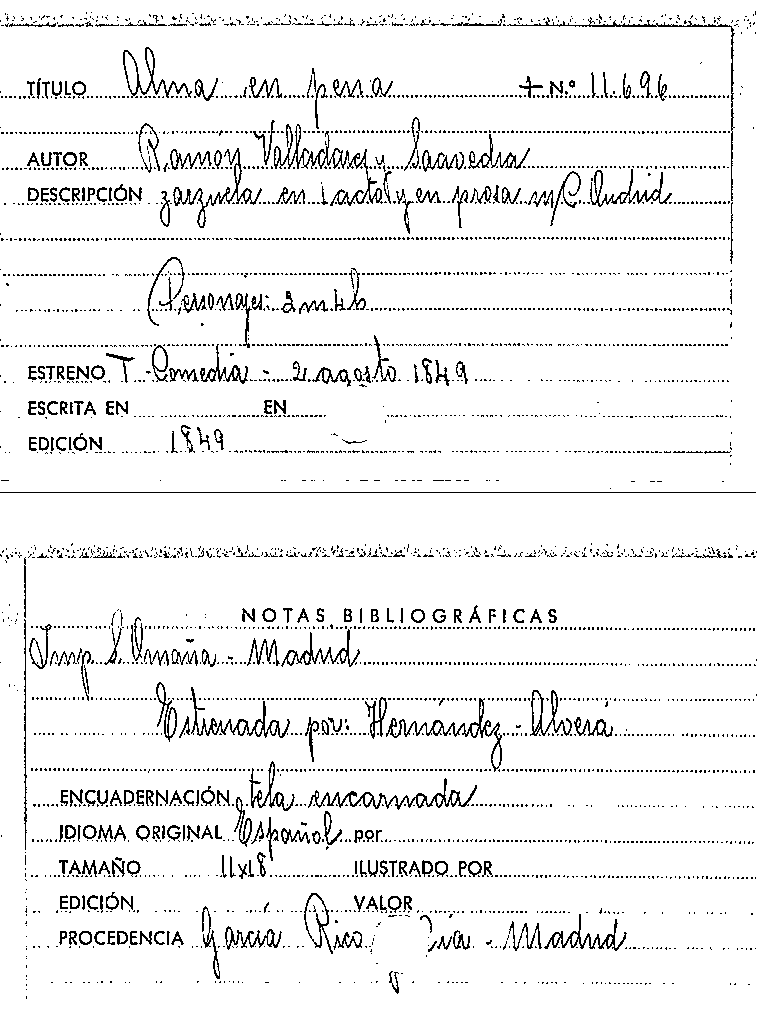 TÍTULO Alma en pena + N.º 11.696
AUTOR Ramón Valladares y Saavedra
DESCRIPCIÓN zarzuela en 1 acto y en prosa m/C. Oudrid
Personajes: 2m 4h
ESTRENO T. Comedia - 2 agosto 1849
ESCRITA EN EN
EDICIÓN 1849
NOTAS BIBLIOGRÁFICAS
Imp S. Omaña - Madrid
Estrenada por: Hernández - Alverá
ENCUADERNACIÓN tela encarnada
IDIOMA ORIGINAL Español por
TAMAÑO 11x18 ILUSTRADO POR
EDICIÓN VALOR
PROCEDENCIA García Rico - Madrid